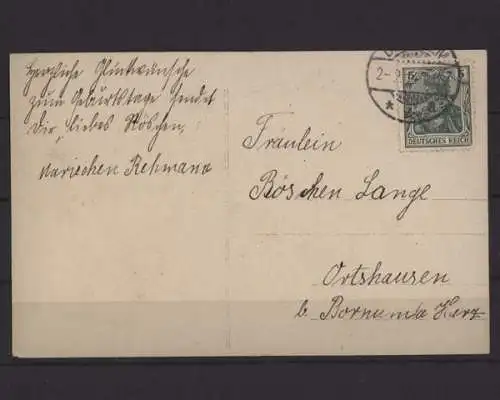 Herzliche Glückwünsche
zum Geburtstage sendet
Dir, liebes Röschen,
Mariechen Rehmann
Fräulein
Röschen Lange
Ortshausen
b. Bornum a Harz
5 5
DEUTSCHES REICH
2-9